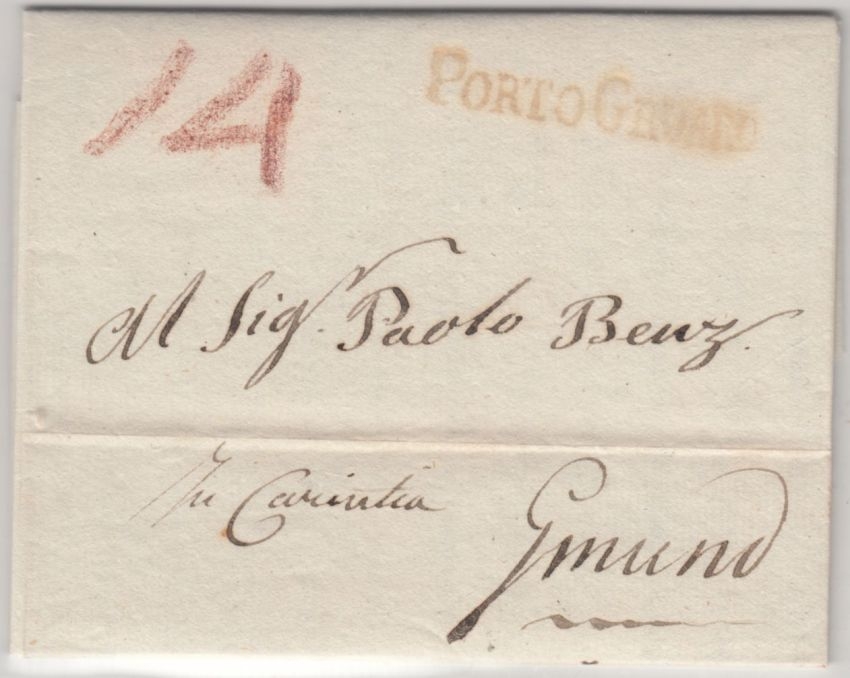 14
PORTOGRUARO
Al Sig.r Paolo Benz.
In Carintia
Gmund